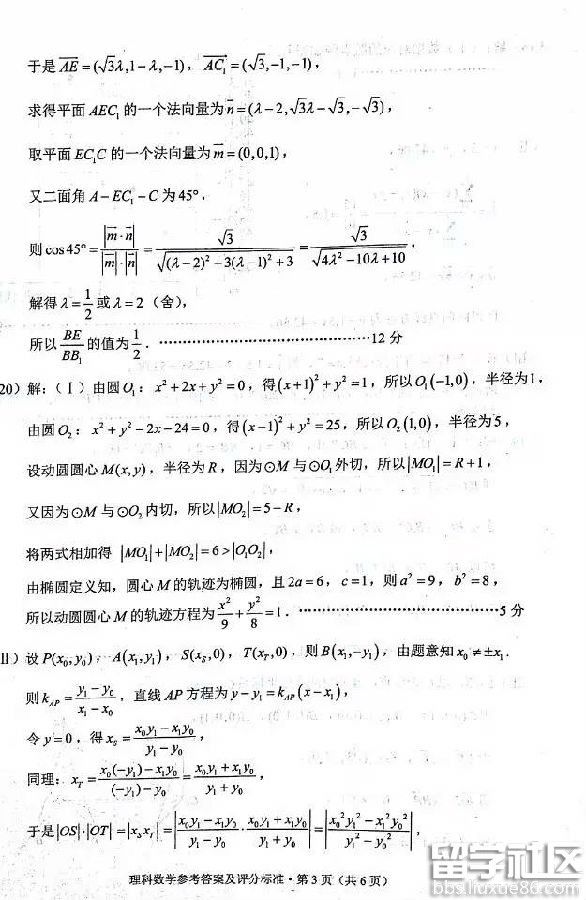 于是 $\overrightarrow{AE}=(\sqrt{3}\lambda,1-\lambda,-1)$, $\overrightarrow{AC_1}=(\sqrt{3},-1,-1)$,
求得平面 $AEC_1$ 的一个法向量为 $\vec{n}=(\lambda-2,\sqrt{3}\lambda-\sqrt{3},-\sqrt{3})$,
取平面 $EC_1C$ 的一个法向量为 $\vec{m}=(0,0,1)$,
又二面角 $A-EC_1-C$ 为 45°.
则 $\cos45°=\frac{|\vec{m}\cdot\vec{n}|}{|\vec{m}|\cdot|\vec{n}|}=\frac{\sqrt{3}}{\sqrt{(\lambda-2)^2-3(\lambda-1)^2+3}}=\frac{\sqrt{3}}{\sqrt{4\lambda^2-10\lambda+10}}$.
解得 $\lambda=\frac{1}{2}$ 或 $\lambda=2$ (舍),
所以 $\frac{BE}{BB_1}$ 的值为 $\frac{1}{2}$. ……………………12 分
20) 解:(Ⅰ) 由圆 $O_1$: $x^2+2x+y^2=0$, 得 $(x+1)^2+y^2=1$, 所以 $O_1(-1,0)$, 半径为1.
由圆 $O_2$: $x^2+y^2-2x-24=0$, 得 $(x-1)^2+y^2=25$, 所以 $O_2(1,0)$, 半径为5,
设动圆圆心 $M(x,y)$, 半径为 $R$, 因为 ⊙$M$ 与 ⊙$O_1$ 外切, 所以 $|MO_1|=R+1$,
又因为 ⊙$M$ 与 ⊙$O_2$ 内切, 所以 $|MO_2|=5-R$,
将两式相加得 $|MO_1|+|MO_2|=6>|O_1O_2|$,
由椭圆定义知, 圆心 $M$ 的轨迹为椭圆, 且 $2a=6$, $c=1$, 则 $a^2=9$, $b^2=8$,
所以动圆圆心 $M$ 的轨迹方程为 $\frac{x^2}{9}+\frac{y^2}{8}=1$. ……………………5 分
Ⅱ) 设 $P(x_0,y_0)$, $A(x_1,y_1)$, $S(x_S,0)$, $T(x_T,0)$. 则 $B(x_1,-y_1)$, 由题意知 $x_0\neq\pm x_1$.
则 $k_{AP}=\frac{y_1-y_0}{x_1-x_0}$. 直线 $AP$ 方程为 $y-y_1=k_{AP}(x-x_1)$,
令 $y=0$, 得 $x_S=\frac{x_0y_1-x_1y_0}{y_1-y_0}$,
同理: $x_T=\frac{x_0(-y_1)-x_1y_0}{(-y_1)-y_0}=\frac{x_0y_1+x_1y_0}{y_1+y_0}$,
于是 $|OS|\cdot|OT|=|x_Sx_T|=\left|\frac{x_0y_1-x_1y_0}{y_1-y_0}\cdot\frac{x_0y_1+x_1y_0}{y_1+y_0}\right|=\left|\frac{x_0^2y_1^2-x_1^2y_0^2}{y_1^2-y_0^2}\right|$,
理科数学参考答案及评分标准·第 3 页 (共 6 页)
留学社区
liuxue86.com